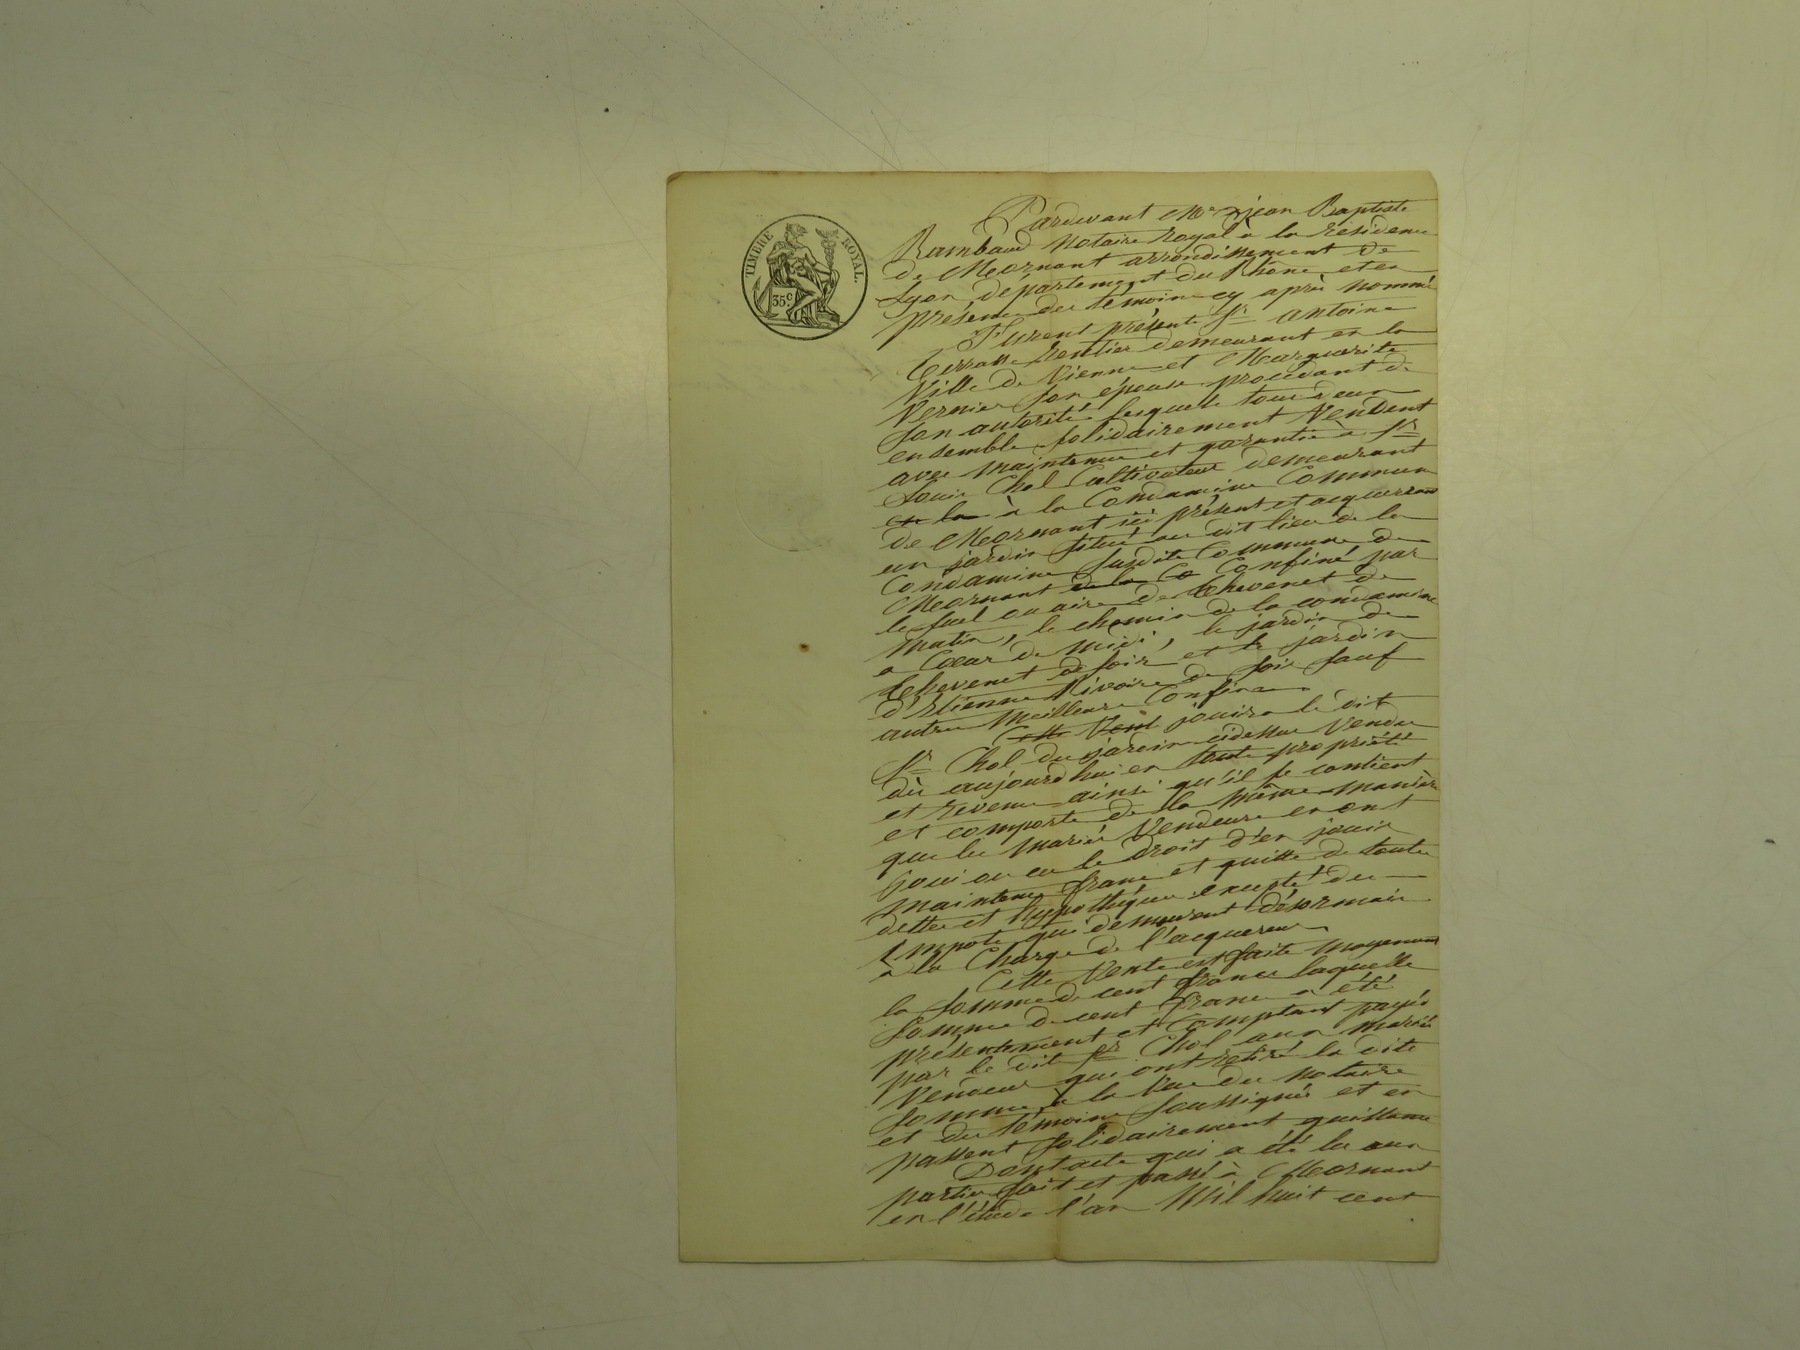 TIMBRE ROYAL.
35c
Pardevant Me jean Baptiste
Rambaud Notaire Royal à la résidence
de Mornant arrondissement de
Lyon département du Rhône et en
présence des témoins cy après nommé
Furent présents Sr antoine
Terrasse Rentier demeurant en la
Ville de Vienne et Marguerite
Vernier son épouse procédant de
son autorité lesquels tous deux
ensemble solidairement Vendent
avec maintenue et garantie à Sr
Louis Chol Cultivateur demeurant
en la à la Condamine Commune
de Mornant ici présent et acquerrant
un jardin situé au dit lieu de la
Condamine susdite Commune de
Mornant de la Co Confiné par
le suel ou aire de Thevenet de
matin, le chemin de la condamine
a Cœur de midi, le jardin de
Thevenet de soir et le jardin
d'Etienne Rivoire de soir sauf
autres meilleurs Confins.
Cette Vente jouira le dit
Sr Chol du jardin cidessus Vendu
dès aujourd'hui en toute propriété
et revenu ainsi qu'il se contient
et comporte de la même manière
que les mariés Vendeurs en ont
joui ou eu le droit d'en jouir
maintenu franc et quitte de toutes
dettes et hyppothéques excepté des
Impots qui demeurent désormais
à la Charge de l'acquereur
Cette Vente est faite moyenant
la somme de cent francs laquelle
somme de cent francs a été
présentement et Comptant payée
par le dit sr Chol aux mariés
Vendeurs qui ont retiré la dite
somme à la Vue du Notaire
et des témoins soussignés et en
passent solidairement quittance
Dont acte qui a été lu aux
parties fait et passé à Mornant
en l'étude l'an Mil huit cent